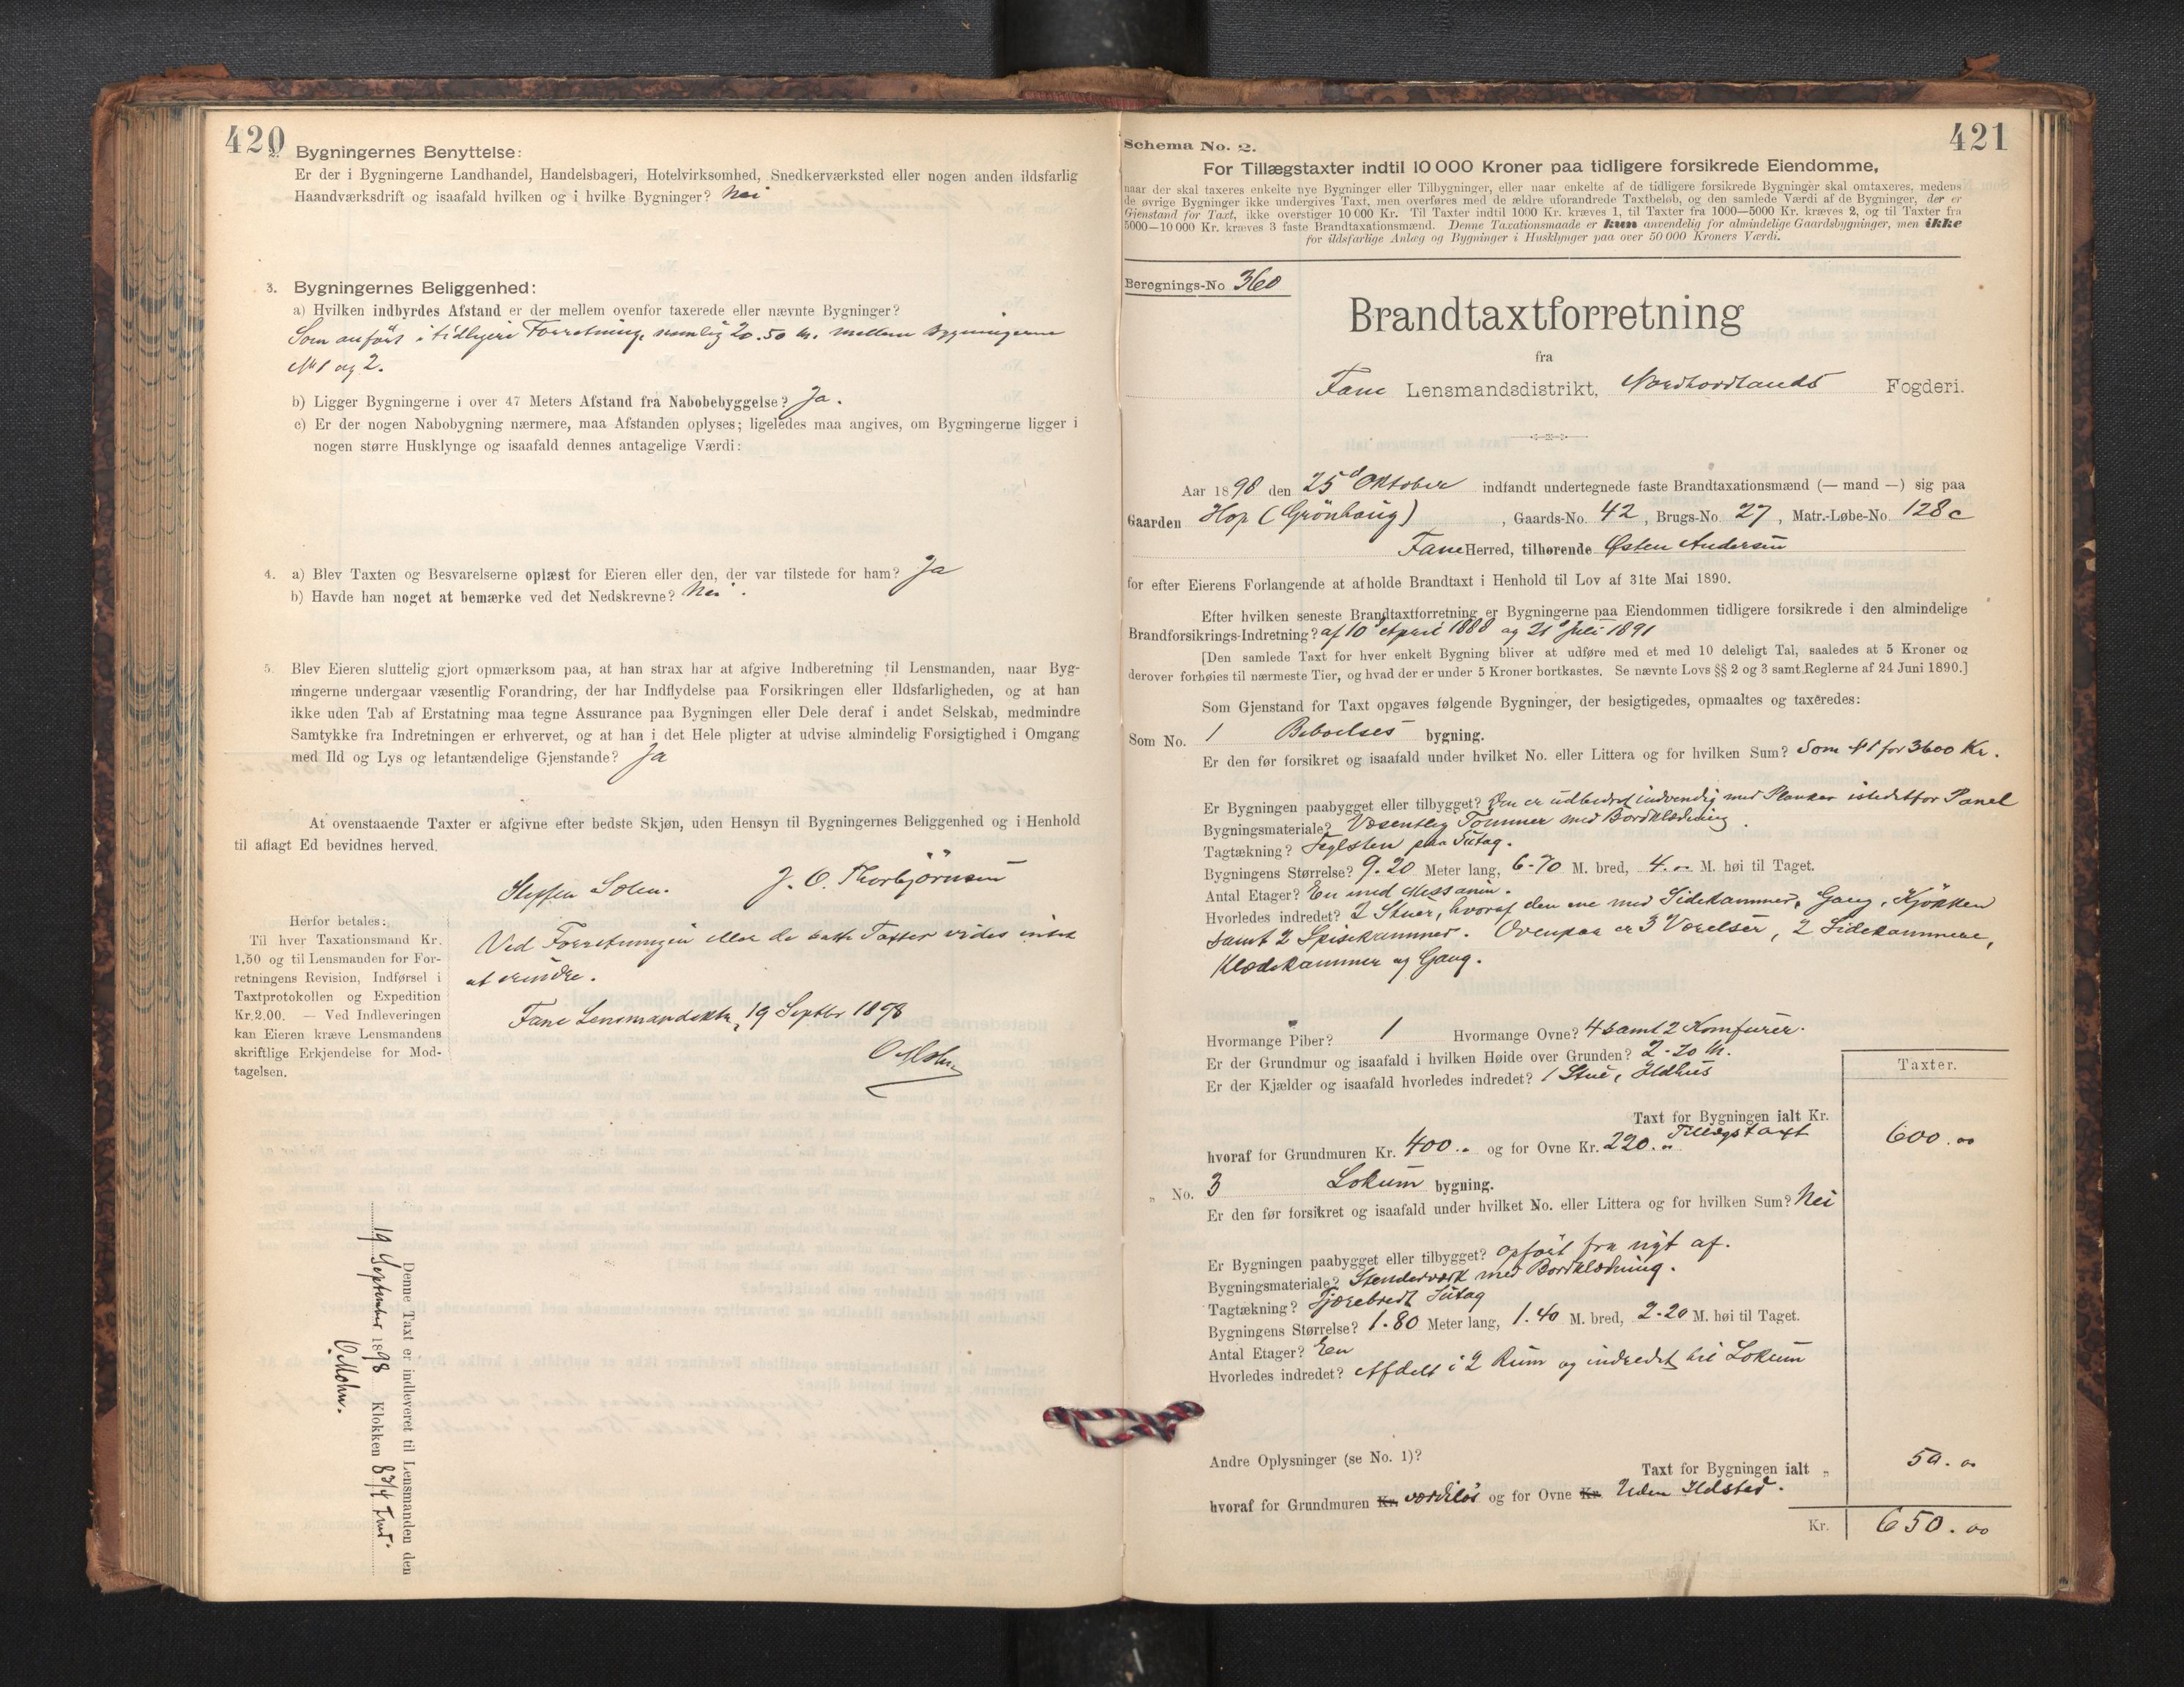 420
2. Bygningernes Benyttelse:
Er der i Bygningerne Landhandel, Handelsbageri, Hotelvirksomhed, Snedkerværksted eller nogen anden ildsfarlig
Haandværksdrift og isaafald hvilken og i hvilke Bygninger? Nei
3. Bygningernes Beliggenhed:
a) Hvilken indbyrdes Afstand er der mellem ovenfor taxerede eller nævnte Bygninger?
Som anført i tidligere Forretning, nemlig 20.50 m. mellem Bygningerne
No 1 og 2.
b) Ligger Bygningerne i over 47 Meters Afstand fra Nabobebyggelse? Ja.
c) Er der nogen Nabobygning nærmere, maa Afstanden oplyses; ligeledes maa angives, om Bygningerne ligger i
nogen større Husklynge og isaafald dennes antagelige Værdi:
4. a) Blev Taxten og Besvarelserne oplæst for Eieren eller den, der var tilstede for ham? Ja
b) Havde han noget at bemærke ved det Nedskrevne? Nei.
5. Blev Eieren sluttelig gjort opmærksom paa, at han strax har at afgive Indberetning til Lensmanden, naar Byg-
ningerne undergaar væsentlig Forandring, der har Indflydelse paa Forsikringen eller Ildsfarligheden, og at han
ikke uden Tab af Erstatning maa tegne Assurance paa Bygningen eller Dele deraf i andet Selskab, medmindre
Samtykke fra Indretningen er erhvervet, og at han i det Hele pligter at udvise almindelig Forsigtighed i Omgang
med Ild og Lys og letantændelige Gjenstande? Ja
At ovenstaaende Taxter er afgivne efter bedste Skjøn, uden Hensyn til Bygningernes Beliggenhed og i Henhold
til aflagt Ed bevidnes herved.
Steffen Solem. J. O. Thorbjörnsen
Herfor betales:
Til hver Taxationsmand Kr.
1,50 og til Lensmanden for For-
retningens Revision, Indførsel i
Taxtprotokollen og Expedition
Kr.2.00. — Ved Indleveringen
kan Eieren kræve Lensmandens
skriftlige Erkjendelse for Mod-
tagelsen.
Ved Forretningen eller de satte Taxter vides intet
at erindre.
Fane Lensmandsktr, 19 Septbr 1898
O Mohn
Denne Taxt er indleveret til Lensmanden den
19 September 1898 Klokken 8 3/4 Fmd.
O. Mohn.
421
Schema No. 2.
For Tillægstaxter indtil 10 000 Kroner paa tidligere forsikrede Eiendomme,
naar der skal taxeres enkelte nye Bygninger eller Tilbygninger, eller naar enkelte af de tidligere forsikrede Bygninger skal omtaxeres, medens
de øvrige Bygninger ikke undergives Taxt, men overføres med de ældre uforandrede Taxtbeløb, og den samlede Værdi af de Bygninger, der er
Gienstand for Taxt, ikke overstiger 10 000 Kr. Til Taxter indtil 1000 Kr. kræves 1, til Taxter fra 1000—5000 Kr. kræves 2, og til Taxter fra
5000—10 000 Kr. kræves 3 faste Brandtaxationsmænd. Denne Taxationsmaade er kun anvendelig for almindelige Gaardsbygninger, men ikke
for ildsfarlige Anlæg og Bygninger i Husklynger paa over 50 000 Kroners Værdi.
Beregnings-No 360
Brandtaxtforretning
fra
Fane Lensmandsdistrikt, Nordhordlands Fogderi.
Aar 1898 den 25d Oktober indfandt undertegnede faste Brandtaxationsmænd (— mand —) sig paa
Gaarden Hop (Grönhaug), Gaards-No. 42, Brugs-No. 27, Matr.-Løbe-No. 128c
Fane Herred, tilhørende Østen Andersen
for efter Eierens Forlangende at afholde Brandtaxt i Henhold til Lov af 31te Mai 1890.
Efter hvilken seneste Brandtaxtforretning er Bygningerne paa Eiendommen tidligere forsikrede i den almindelige
Brandforsikrings-Indretning? af 10d April 1888 og 21d Juli 1891
[Den samlede Taxt for hver enkelt Bygning bliver at udføre med et med 10 deleligt Tal, saaledes at 5 Kroner og
derover forhøies til nærmeste Tier, og hvad der er under 5 Kroner bortkastes. Se nævnte Lovs §§ 2 og 3 samt Reglerne af 24 Juni 1890.]
Som Gjenstand for Taxt opgaves følgende Bygninger, der besigtigedes, opmaaltes og taxeredes:
Som No. 1 Beboelses bygning.
Er den før forsikret og isaafald under hvilket No. eller Littera og for hvilken Sum? Som No 1 for 3600 Kr.
Er Bygningen paabygget eller tilbygget? Den er udbedret indvendig med Planker istedetfor Panel
Bygningsmateriale? Væsentlig Tømmer med Bordklædning.
Tagtækning? Teglsten paa Sutag.
Bygningens Størrelse? 9.20 Meter lang, 6.70 M. bred, 4.00 M. høi til Taget.
Antal Etager? En med Messanin.
Hvorledes indredet? 2 Stuer, hvoraf den ene med Sidekammer, Gang, Kjøkken
samt 2 Spisekammer. Ovenpaa er 3 Værelser, 2 Sidekammere,
Klædekammer og Gang.
Hvormange Piber? 1 Hvormange Ovne? 4 samt 2 Komfurer.
Er der Grundmur og isaafald i hvilken Høide over Grunden? 2.20 M.
Er der Kjælder og isaafald hvorledes indredet? 1 Stue, Ildhus
Taxter.
Taxt for Bygningen ialt Kr.
Tillægstaxt 600.00
hvoraf for Grundmuren Kr. 400.. og for Ovne Kr. 220..
„ No. 3 Lokum bygning.
Er den før forsikret og isaafald under hvilket No. eller Littera og for hvilken Sum? Nei
Er Bygningen paabygget eller tilbygget? Opført fra nyt af.
Bygningsmateriale? Stenderværk med Bordklædning.
Tagtækning? Tjærebredt Sutag
Bygningens Størrelse? 1.80 Meter lang, 1.40 M. bred, 2.20 M. høi til Taget.
Antal Etager? En
Hvorledes indredet? Afdelt i 2 Rum og indredet til Lokum
Andre Oplysninger (se No. 1)?
Taxt for Bygningen ialt „ 50.00
hvoraf for Grundmuren Kr. værdiløs og for Ovne Kr. Uden Ildsted.
Kr. 650.00